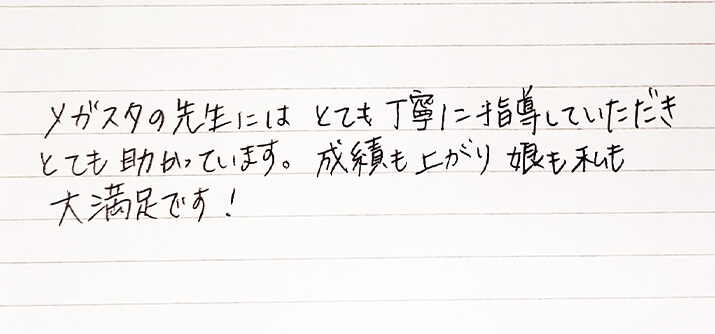 メガスタの先生には とても丁寧に指導していただき
とても助かっています。成績も上がり 娘も私も
大満足です！